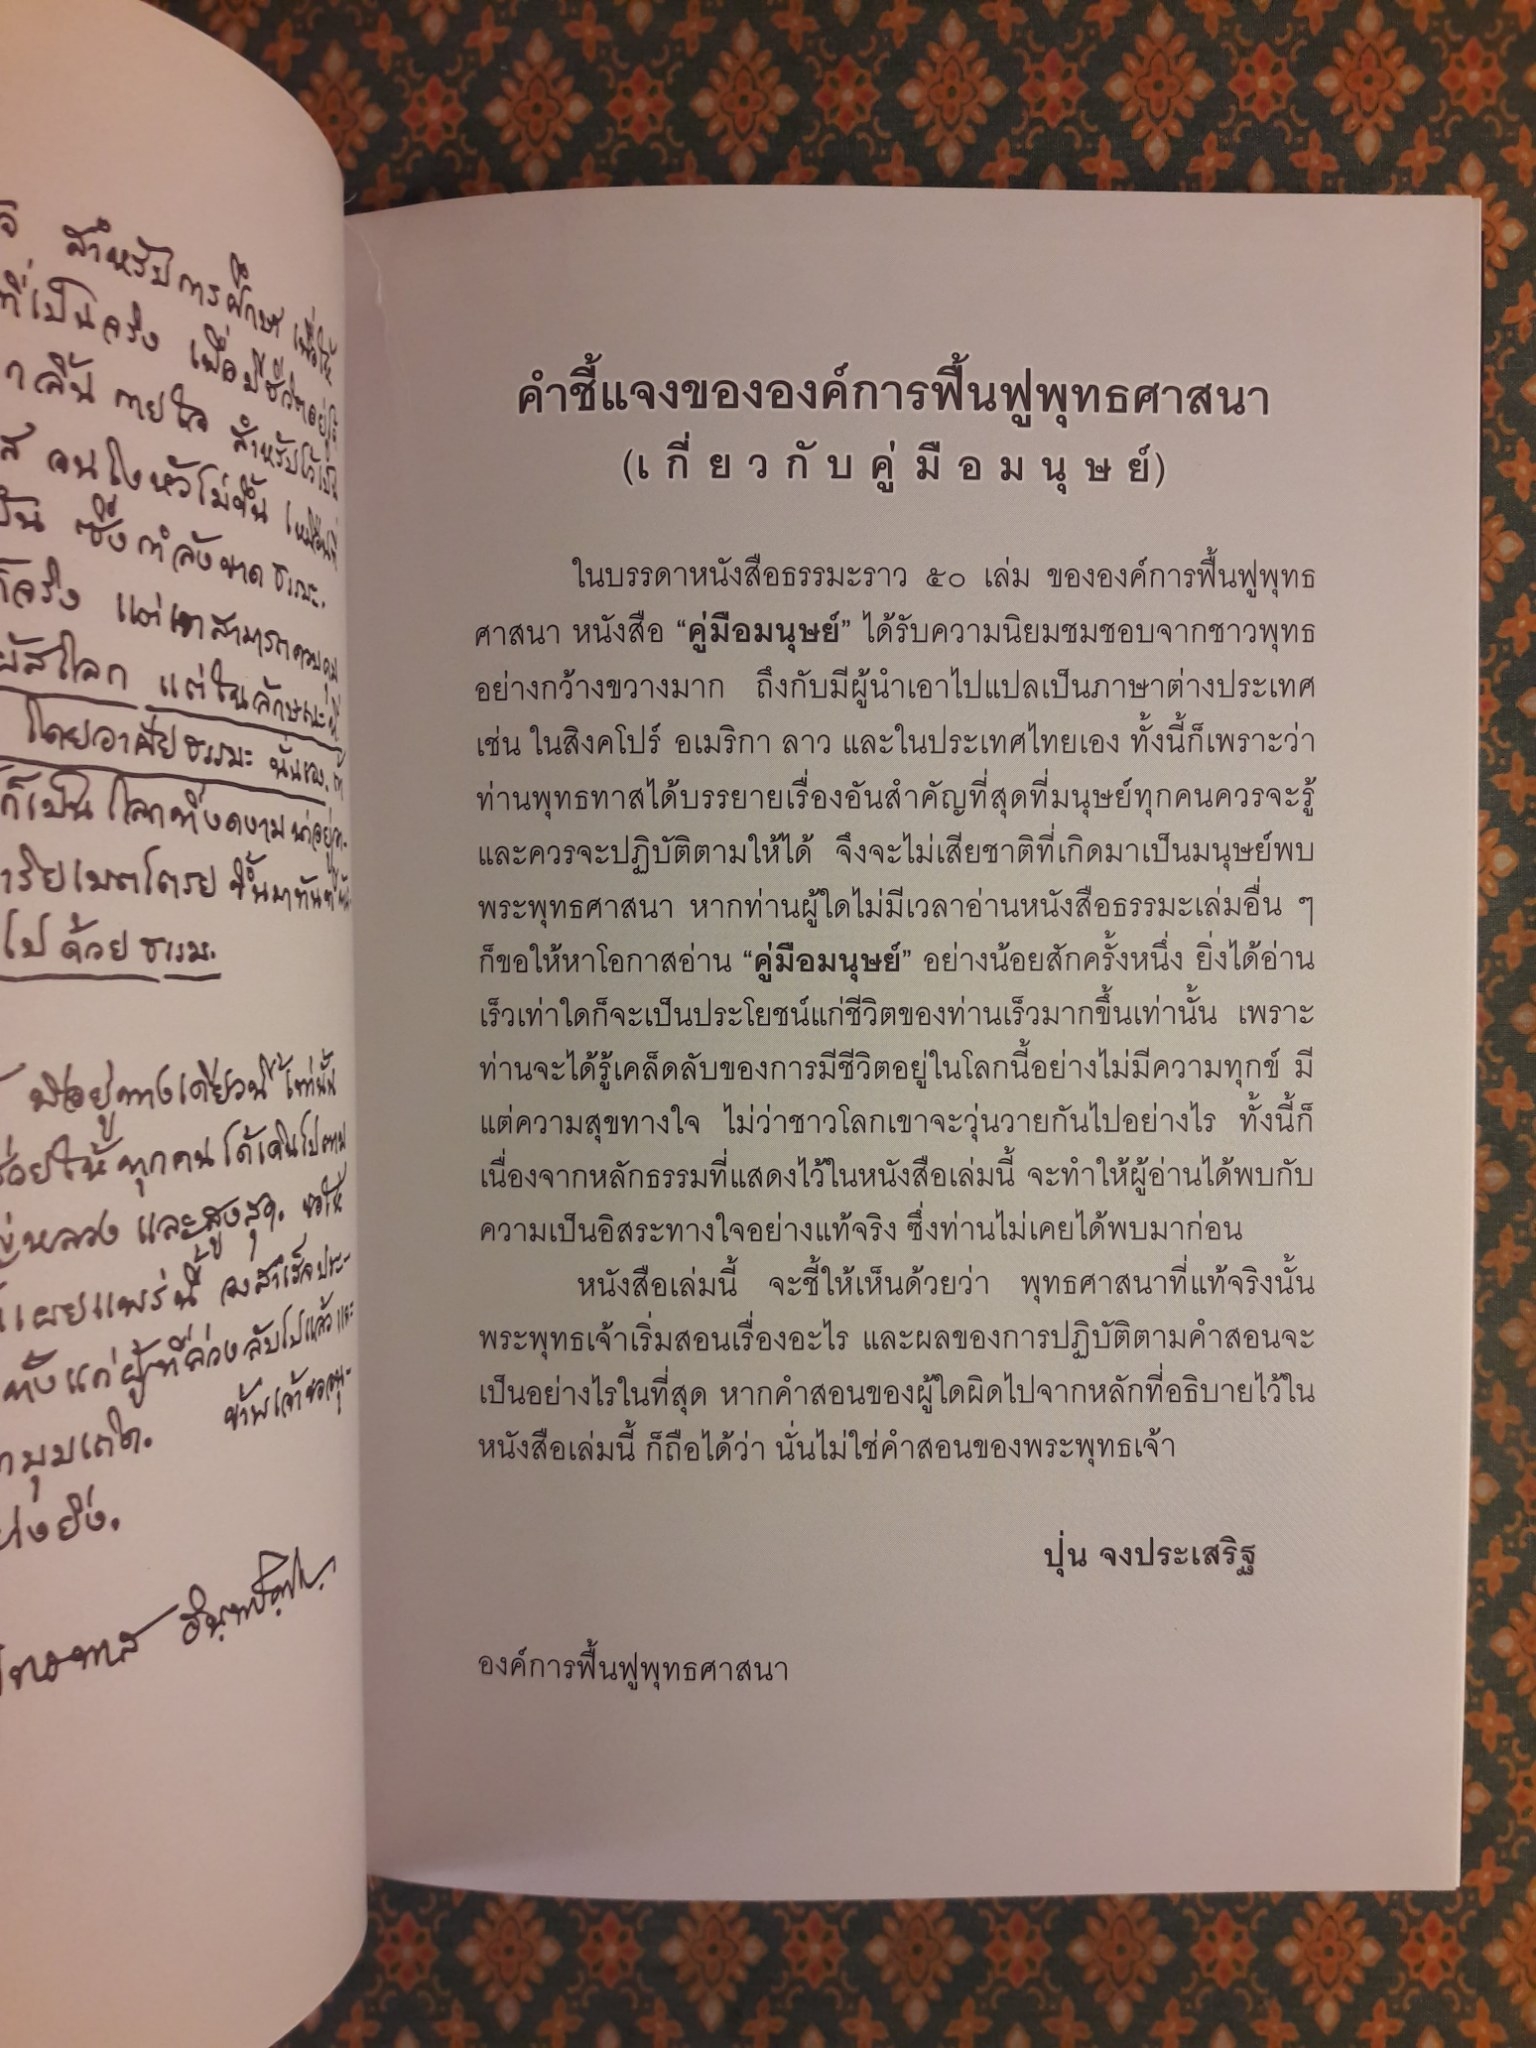 สำหรับการศึกษา เพื่อให้
ที่เป็นจริง เพื่อมีชีวิตอยู่
ลิ้น กายใจ สำหรับไว้เป็น
จนโงหัวไม่ขึ้น เหมือนที่
ซึ่งกำลังขาด ธรรมะ.
แต่เขาสามารถควบคุม
แต่ในลักษณะที่
โดยอาศัยธรรมะ นั่นเอง.
ก็เป็นโลกที่งดงามน่าอยู่
ขึ้นมาทันที
ไปด้วยธรรม.
มีอยู่ทางเดียวนี้เท่านั้น
ให้ทุกคนได้เดินไปตาม
หลวง และสูงสุด. ขอให้
เผยแพร่นี้ จงสำเร็จประ-
ทั้งแก่ผู้ที่ล่วงลับไปแล้วและ
มุมเถิด. ข้าพเจ้าขออนุ-
ยิ่ง.
คำชี้แจงขององค์การฟื้นฟูพุทธศาสนา
(เกี่ยวกับคู่มือมนุษย์)
ในบรรดาหนังสือธรรมะราว ๕๐ เล่ม ขององค์การฟื้นฟูพุทธ
ศาสนา หนังสือ “คู่มือมนุษย์” ได้รับความนิยมชมชอบจากชาวพุทธ
อย่างกว้างขวางมาก ถึงกับมีผู้นำเอาไปแปลเป็นภาษาต่างประเทศ
เช่น ในสิงคโปร์ อเมริกา ลาว และในประเทศไทยเอง ทั้งนี้ก็เพราะว่า
ท่านพุทธทาสได้บรรยายเรื่องอันสำคัญที่สุดที่มนุษย์ทุกคนควรจะรู้
และควรจะปฏิบัติตามให้ได้ จึงจะไม่เสียชาติที่เกิดมาเป็นมนุษย์พบ
พระพุทธศาสนา หากท่านผู้ใดไม่มีเวลาอ่านหนังสือธรรมะเล่มอื่น ๆ
ก็ขอให้หาโอกาสอ่าน “คู่มือมนุษย์” อย่างน้อยสักครั้งหนึ่ง ยิ่งได้อ่าน
เร็วเท่าใดก็จะเป็นประโยชน์แก่ชีวิตของท่านเร็วมากขึ้นเท่านั้น เพราะ
ท่านจะได้รู้เคล็ดลับของการมีชีวิตอยู่ในโลกนี้อย่างไม่มีความทุกข์ มี
แต่ความสุขทางใจ ไม่ว่าชาวโลกเขาจะวุ่นวายกันไปอย่างไร ทั้งนี้ก็
เนื่องจากหลักธรรมที่แสดงไว้ในหนังสือเล่มนี้ จะทำให้ผู้อ่านได้พบกับ
ความเป็นอิสระทางใจอย่างแท้จริง ซึ่งท่านไม่เคยได้พบมาก่อน
หนังสือเล่มนี้ จะชี้ให้เห็นด้วยว่า พุทธศาสนาที่แท้จริงนั้น
พระพุทธเจ้าเริ่มสอนเรื่องอะไร และผลของการปฏิบัติตามคำสอนจะ
เป็นอย่างไรในที่สุด หากคำสอนของผู้ใดผิดไปจากหลักที่อธิบายไว้ใน
หนังสือเล่มนี้ ก็ถือได้ว่า นั่นไม่ใช่คำสอนของพระพุทธเจ้า
ปุ่น จงประเสริฐ
องค์การฟื้นฟูพุทธศาสนา